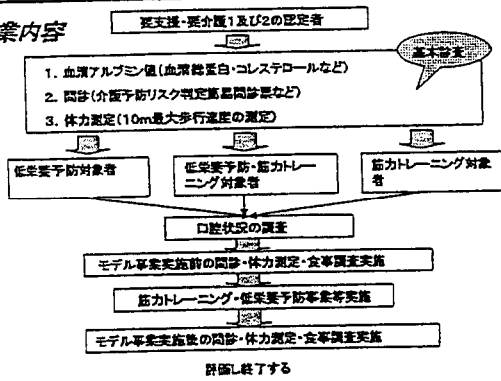 業内容
要支援・要介護1及び2の認定者
基本診査
1. 血清アルブミン値(血清総蛋白・コレステロールなど)
2. 問診(介護予防リスク判定簡易問診票など)
3. 体力測定(10m最大歩行速度の測定)
低栄養予防対象者
低栄養予防・筋力トレー
ニング対象者
筋力トレーニング対象
者
口腔状況の調査
モデル事業実施前の問診・体力測定・食事調査実施
筋力トレーニング・低栄養予防事業等実施
モデル事業実施後の問診・体力測定・食事調査実施
評価し終了する